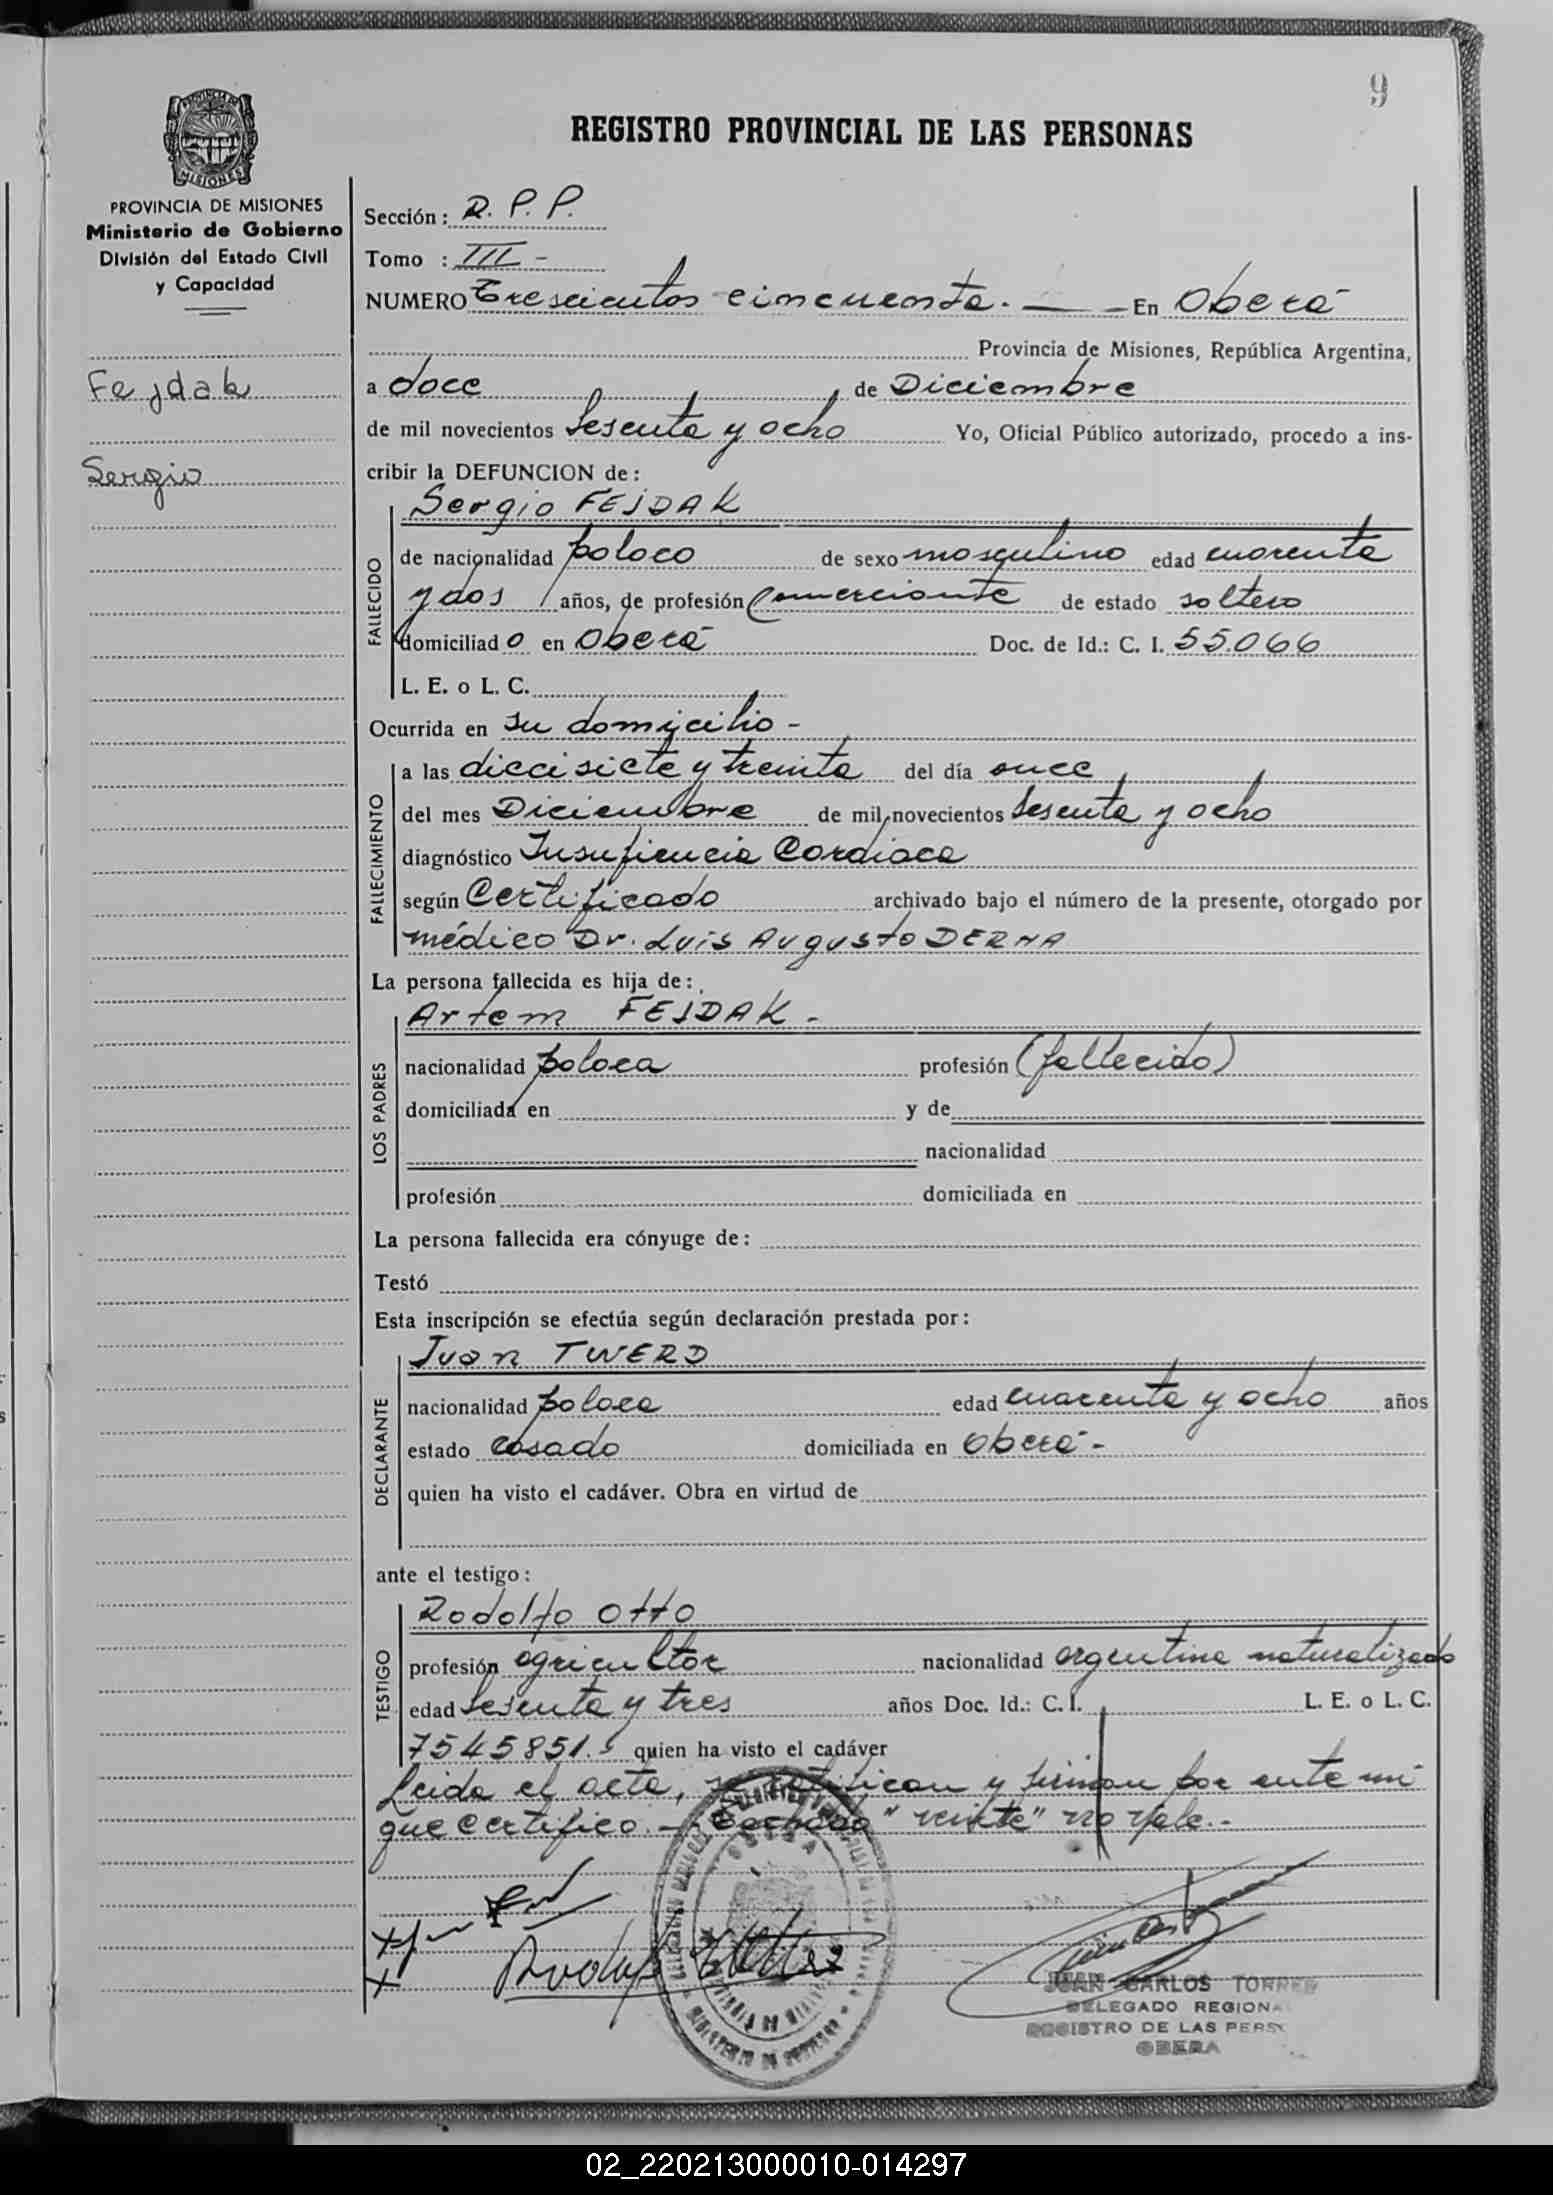 9
REGISTRO PROVINCIAL DE LAS PERSONAS
PROVINCIA DE MISIONES
PROVINCIA DE MISIONES
Ministerio de Gobierno
División del Estado Civil
y Capacidad
Fejdak
Sergio
Sección: R. P. P.
Tomo : III -
NUMERO Trescientos cincuenta. — En Oberá
Provincia de Misiones, República Argentina,
a doce de Diciembre
de mil novecientos Sesenta y ocho Yo, Oficial Público autorizado, procedo a ins-
cribir la DEFUNCION de:
Sergio FEJDAK
FALLECIDO
de nacionalidad poloco de sexo masculino edad cuarenta
y dos años, de profesión Comerciante de estado soltero
domiciliado en Oberá Doc. de Id.: C. I. 55.066
L. E. o L. C.
Ocurrida en su domicilio -
FALLECIMIENTO
a las diecisiete y treinta del día once
del mes Diciembre de mil novecientos Sesenta y ocho
diagnóstico Insuficiencia Cardiaca
según Certificado archivado bajo el número de la presente, otorgado por
médico Dr. Luis Augusto DERNA
La persona fallecida es hija de:
LOS PADRES
Artem FEJDAK -
nacionalidad polaca profesión (fallecido)
domiciliada en y de
nacionalidad
profesión domiciliada en
La persona fallecida era cónyuge de:
Testó
Esta inscripción se efectúa según declaración prestada por:
DECLARANTE
Juan TWERD
nacionalidad polaca edad cuarenta y ocho años
estado casado domiciliada en Oberá -
quien ha visto el cadáver. Obra en virtud de
ante el testigo:
TESTIGO
Rodolfo Otto
profesión agricultor nacionalidad argentina naturalizado
edad Sesenta y tres años Doc. Id.: C. I. L. E. o L. C.
7545851. quien ha visto el cadáver
Leida el acta, se ratifican y firman por ante mi
que certifico. — Testado "veinte" no vale.-
Rodolfo Otto
JUAN CARLOS TORRES
DELEGADO REGIONAL
REGISTRO DE LAS PERSO
OBERA
02_220213000010-014297